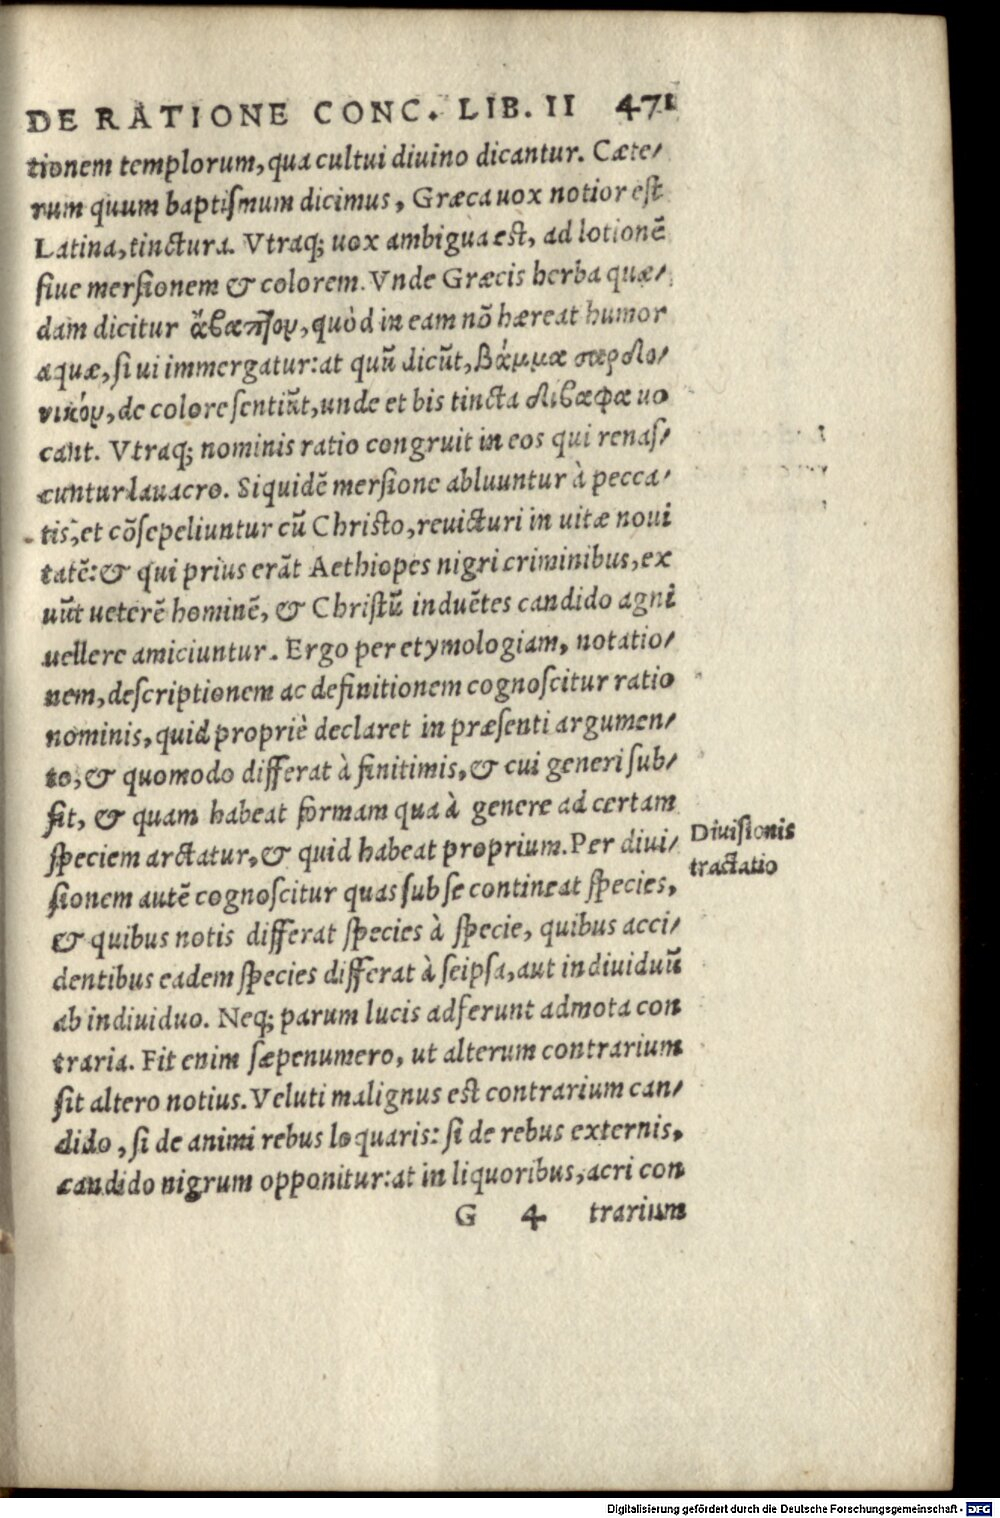 DE RATIONE CONC. LIB. II 471
tionem templorum, qua cultui diuino dicantur. Cæte/
rum quum baptiſmum dicimus, Græca uox notior eſt
Latina, tinctura. Vtraq; uox ambigua eſt, ad lotionē
ſiue merſionem & colorem. Vnde Græcis herba quæ/
dam dicitur ἄβαπτον, quòd in eam nō hæreat humor
aquæ, ſi ui immergatur: at quū dicūt, βάμμα σαρδο/
νικόν, de colore ſentiūt, unde et bis tincta δίβαφα uo
cant. Vtraq; nominis ratio congruit in eos qui renaſ/
cuntur lauacro. Siquidē merſione abluuntur à pecca/
tis, et cōſepeliuntur cū Chriſto, reuicturi in uitæ noui
tatē: & qui prius erāt Aethiopes nigri criminibus, ex
uūt ueterē hominē, & Chriſtū induētes candido agni
uellere amiciuntur. Ergo per etymologiam, notatio/
nem, deſcriptionem ac definitionem cognoſcitur ratio
nominis, quid propriè declaret in præſenti argumen/
to, & quomodo differat à finitimis, & cui generi ſub/
ſit, & quam habeat formam qua à genere ad certam
ſpeciem arctatur, & quid habeat proprium. Per diui/
Diuiſionis
tractatio
ſionem autē cognoſcitur quas ſub ſe contineat ſpecies,
& quibus notis differat ſpecies à ſpecie, quibus acci/
dentibus eadem ſpecies differat à ſeipſa, aut indiuiduū
ab indiuiduo. Neq; parum lucis adferunt admota con
traria. Fit enim ſæpenumero, ut alterum contrarium
ſit altero notius. Veluti malignus eſt contrarium can/
dido, ſi de animi rebus loquaris: ſi de rebus externis,
candido nigrum opponitur: at in liquoribus, acri con
G 4 trarium
Digitalisierung gefördert durch die Deutsche Forschungsgemeinschaft - DFG